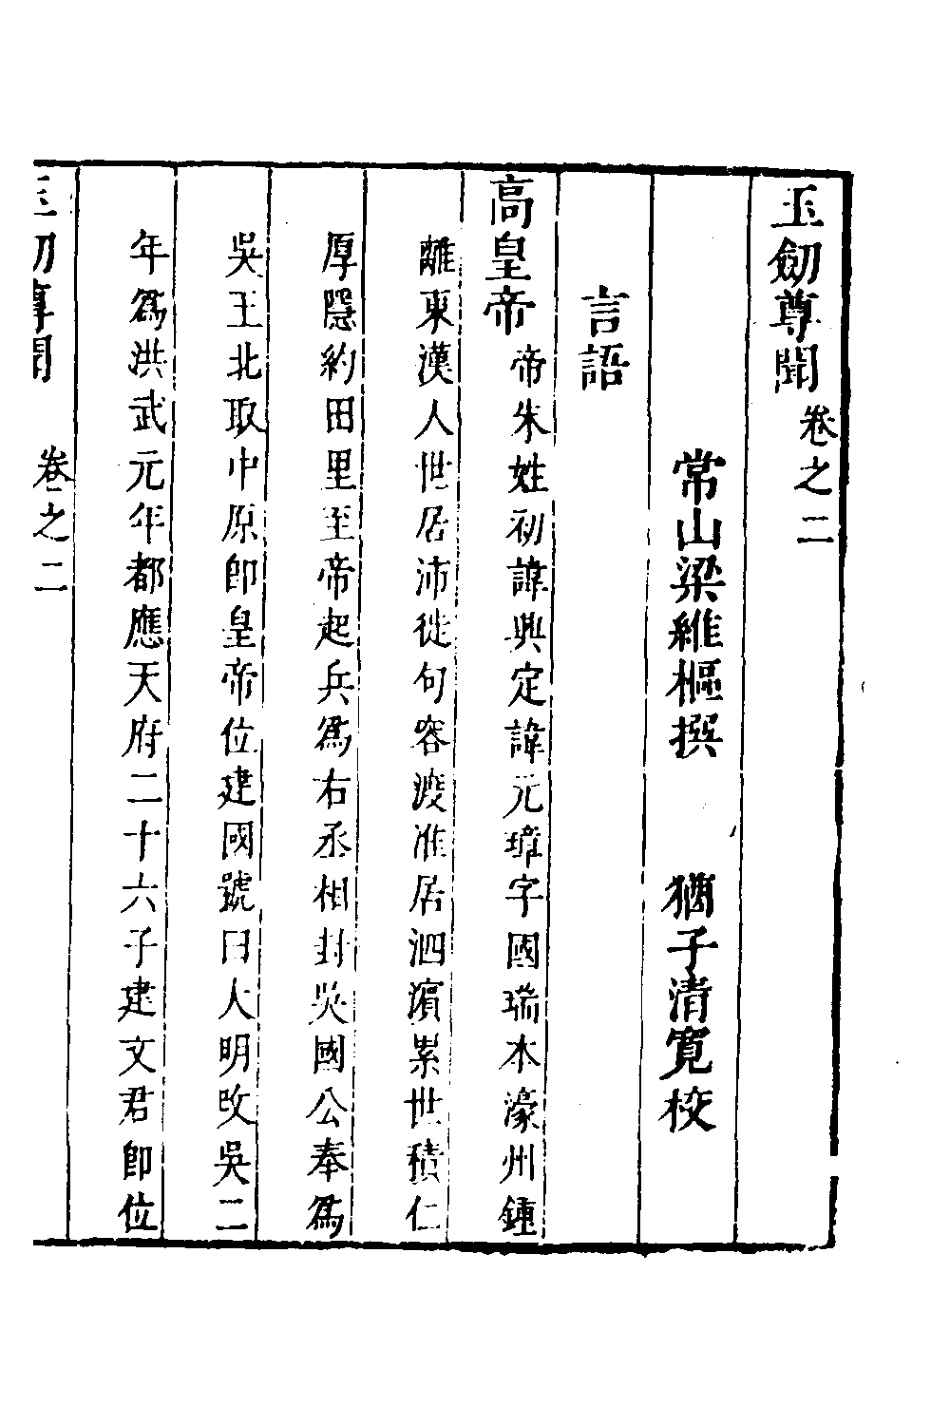 玉劒尊聞卷之二
常山梁維樞撰　猶子清寛校
言語
高皇帝帝朱姓初諱興定諱元璋字國瑞本濠州鍾
離東漢人世居沛徙句容渡淮居泗濵累世積仁
厚隱約田里至帝起兵爲右丞相封吳國公奉爲
吳王北取中原卽皇帝位建國號曰大明改吳二
年爲洪武元年都應天府二十六子建文君卽位
玉劒尊聞　卷之二